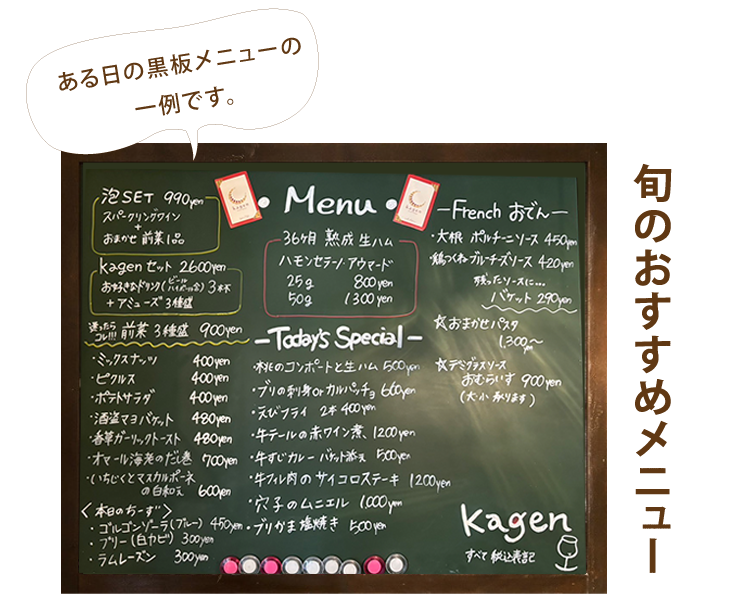 ある日の黒板メニューの
一例です。
旬のおすすめメニュー
Menu
泡SET 990yen
スパークリングワイン
+
おまかせ 前菜1品
kagenセット 2600yen
お好きなドリンク(ビール ハイボール含) 3杯
+ アミューズ3種盛
迷ったらコレ!!! 前菜3種盛 900yen
・ミックスナッツ 400yen
・ピクルス 400yen
・ポテトサラダ 400yen
・酒盗マヨバケット 480yen
・香草ガーリックトースト 480yen
・オマール海老のだし巻 700yen
・いちじくとマスカルポーネ
の白和え 600yen
〈本日のちーず〉
・ゴルゴンゾーラ(ブルー) 450yen
・ブリー(白カビ) 300yen
・ラムレーズン 300yen
36ヶ月 熟成 生ハム
ハモンセラーノ・アウマード
25g 800yen
50g 1300yen
-Today's Special-
・桃のコンポートと生ハム 500yen
・ブリの刺身orカルパッチョ 600yen
・えびフライ 2本 400yen
・牛テールの赤ワイン煮 1200yen
・牛すじカレー バケット添え 500yen
・牛フィレ肉のサイコロステーキ 1200yen
・穴子のムニエル 1,000yen
・ブリかま塩焼き 500yen
-French おでん-
・大根 ポルチーニソース 450yen
・鶏つくね ブルーチーズソース 420yen
残ったソースに...
バケット 290yen
☆おまかせパスタ
1,300~yen
☆デミグラスソース
おむらいす 900yen
(大・小 承ります)
kagen
すべて税込表記